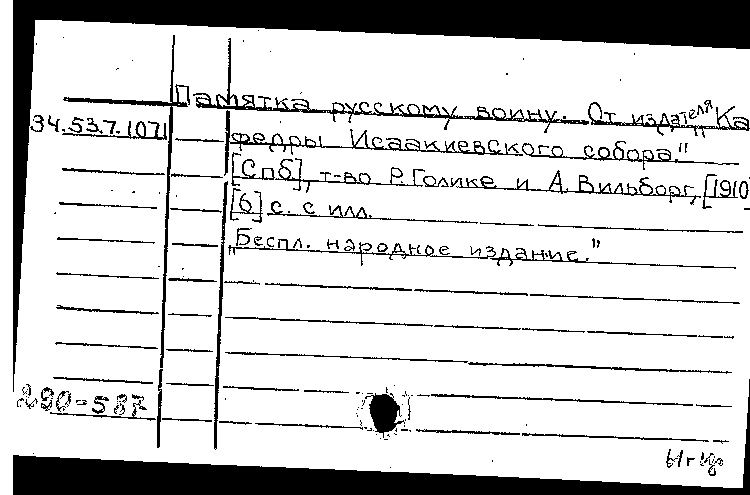 Памятка русскому воину. От издателя „Ка
34.53.7.1071
федры Исаакиевского собора."
[Спб], т-во Р. Голике и А. Вильборг, [1910
[6] с. с илл.
„Беспл. народное издание."
290-587